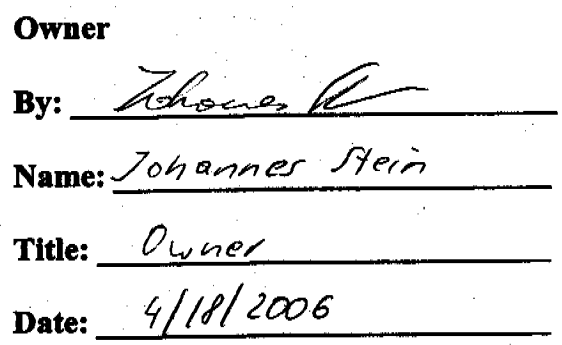 Owner
By: Johannes
Name: Johannes Stein
Title: Owner
Date: 4/18/2006